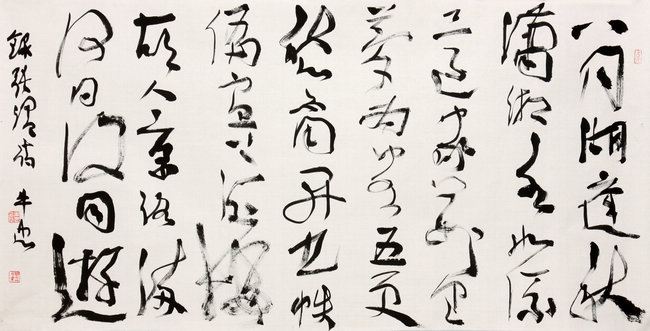 八月洞庭秋
瀟湘水北流
還家萬里
夢為客五更
愁不用開書帙
偏宜上酒樓
故人京洛滿
何日復同遊
錄張謂詩 牛